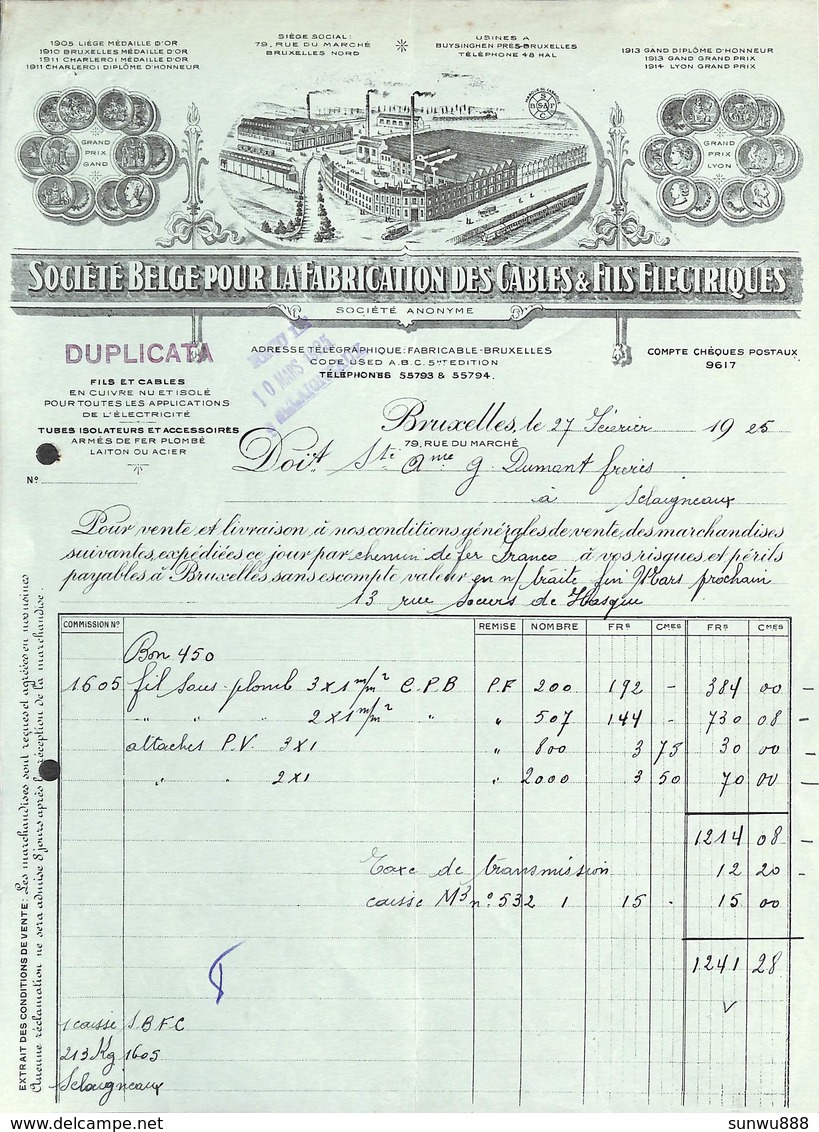 1905 LIÉGE MÉDAILLE D'OR
1910 BRUXELLES MÉDAILLE D'OR
1911 CHARLEROI MÉDAILLE D'OR
1911 CHARLEROI DIPLÔME D'HONNEUR
SIÈGE SOCIAL:
79, RUE DU MARCHÉ
BRUXELLES NORD
USINES A
BUYSINGHEN PRÈS-BRUXELLES
TÉLÉPHONE 48 HAL
1913 GAND DIPLÔME D'HONNEUR
1913 GAND GRAND PRIX
1914 LYON GRAND PRIX
GRAND
PRIX
GAND
GRAND
PRIX
LYON
SOCIÉTÉ BELGE POUR LA FABRICATION DES CÂBLES & FILS ELECTRIQUES
SOCIÉTÉ ANONYME
DUPLICATA
10 MARS 1925
ADRESSE TÉLÉGRAPHIQUE: FABRICABLE-BRUXELLES
CODE USED A.B.C. 5TH EDITION
TÉLÉPHONES 55793 & 55794.
COMPTE CHÈQUES POSTAUX
9617
FILS ET CABLES
EN CUIVRE NU ET ISOLÉ
POUR TOUTES LES APPLICATIONS
DE L'ÉLECTRICITÉ
TUBES ISOLATEURS ET ACCESSOIRES
ARMÉS DE FER PLOMBÉ
LAITON OU ACIER
No
Bruxelles, le 27 Février 1925
79, RUE DU MARCHÉ
Doit Sté Ame G. Dumont frères
à Sclaigneaux
Pour vente et livraison à nos conditions générales de vente, des marchandises
suivantes, expédiées ce jour par chemin de fer Franco à vos risques et périls
payables à Bruxelles, sans escompte valeur en n/ traite fin Mars prochain
13 rue Soeurs de Hasque
COMMISSION No REMISE NOMBRE FRS CMES FRS CMES
Bon 450
1605 fil sous plomb 3 x 1 m/m2 C.P.B P.F 200 192 - 384 00
" " " 2 x 1 m/m2 " " 507 144 - 730 08
attaches P.V. 3x1 " 800 3 75 30 00
" " 2x1 " 2000 3 50 70 00
1214 08
Taxe de transmission 12 20
caisse M3 no. 532 1 15 - 15 00
1241 28
1 caisse S.B.F.C
213 Kg 1605
Sclaigneaux
EXTRAIT DES CONDITIONS DE VENTE: Les marchandises sont reçues et agréées en nos usines
Aucune réclamation ne sera admise 8 jours après la réception de la marchandise.
sunwu888